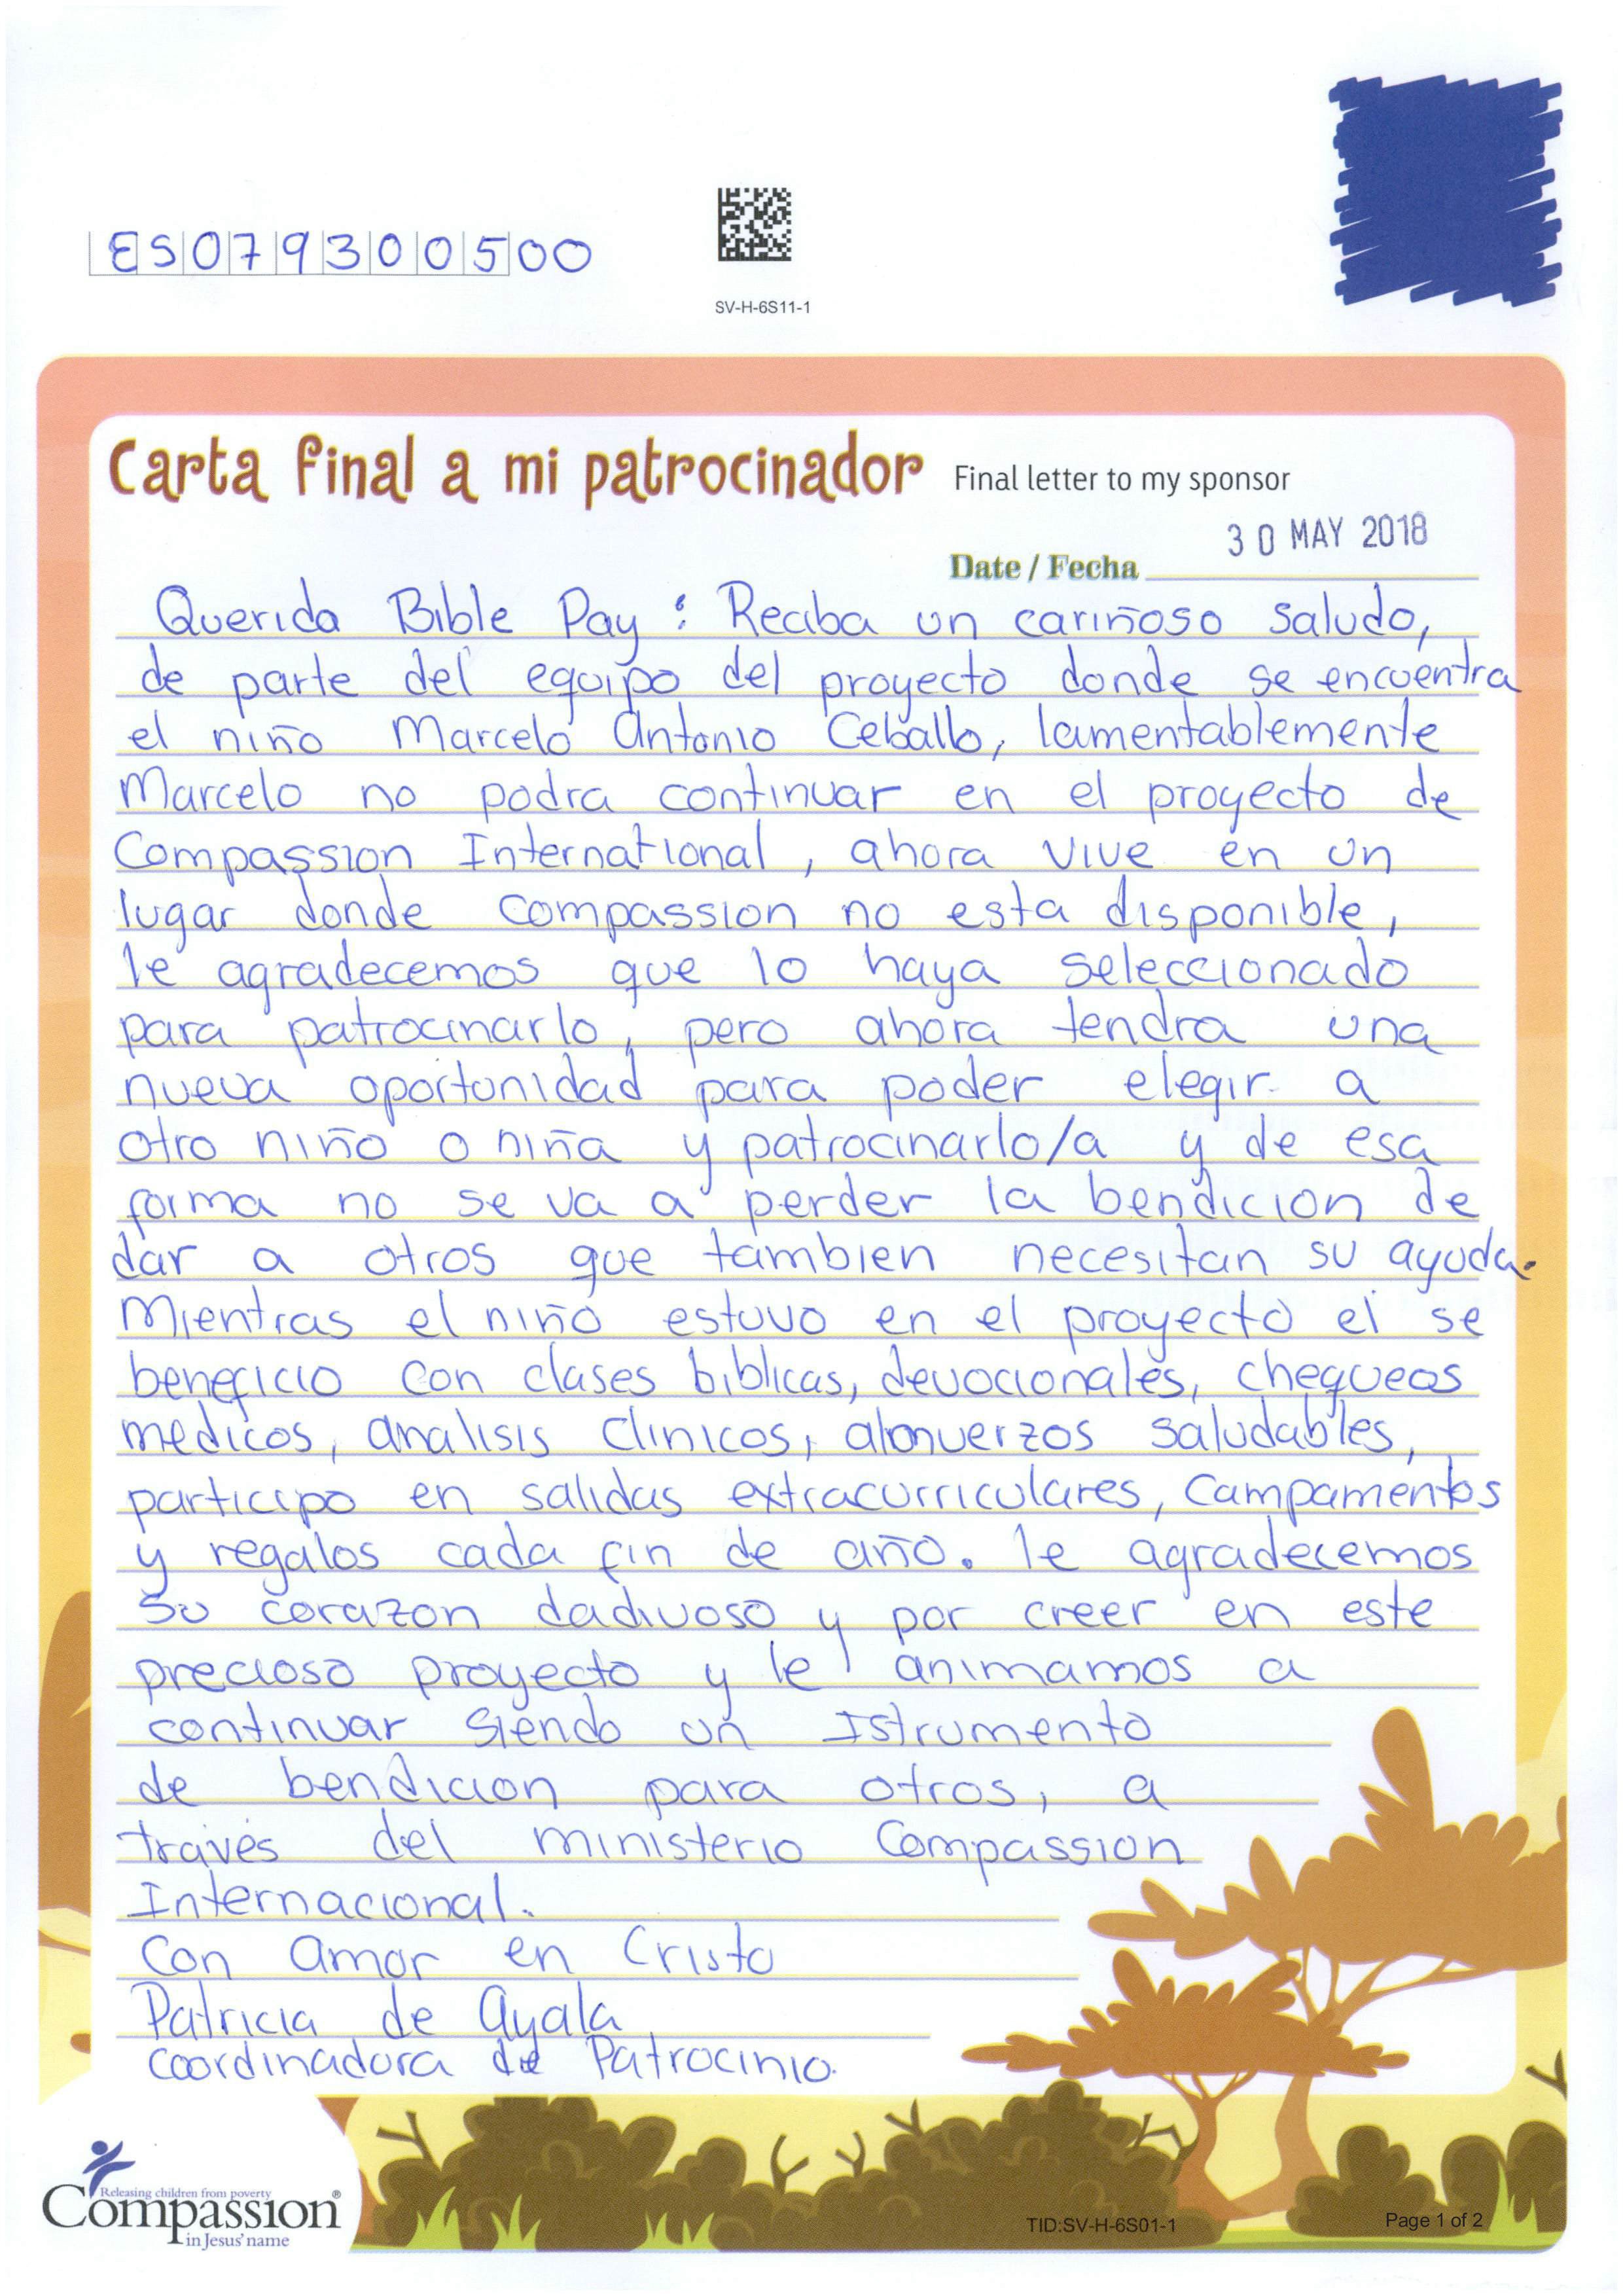 ES079300500
SV-H-6S11-1
Carta final a mi patrocinador Final letter to my sponsor
30 MAY 2018
Date / Fecha
Querida Bible Pay : Reciba un cariñoso saludo,
de parte del equipo del proyecto donde se encuentra
el niño Marcelo Antonio Ceballo, lamentablemente
Marcelo no podra continuar en el proyecto de
Compassion International, ahora vive en un
lugar donde compassion no esta disponible,
le agradecemos que lo haya seleccionado
para patrocinarlo, pero ahora tendra una
nueva oportunidad para poder elegir a
otro niño o niña y patrocinarlo/a y de esa
forma no se va a perder la bendicion de
dar a otros que tambien necesitan su ayuda.
Mientras el niño estuvo en el proyecto el se
beneficio con clases biblicas, devocionales, chequeos
medicos, analisis clinicos, almuerzos saludables,
participo en salidas extracurriculares, campamentos
y regalos cada fin de año. le agradecemos
su corazon dadivoso y por creer en este
precioso proyecto y le animamos a
continuar siendo un Istrumento
de bendicion para otros, a
través del ministerio Compassion
Internacional.
Con amor en Cristo
Patricia de Ayala
coordinadora de Patrocinio.
Releasing children from poverty
Compassion®
in Jesus' name
TID:SV-H-6S01-1
Page 1 of 2